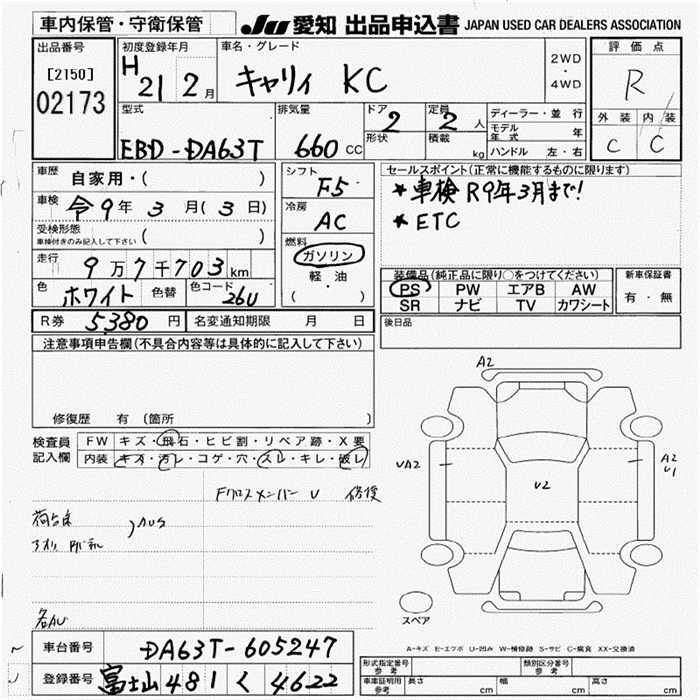 車内保管・守衛保管
JU 愛知 出品申込書 JAPAN USED CAR DEALERS ASSOCIATION
出品番号
[2150]
02173
初度登録年月
H 21 2月
車名・グレード
キャリィ KC
2WD
・
4WD
評価点
R
外装 内装
C C
型式
EBD-DA63T
排気量
660 CC
ドア 2
形状
定員 2 人
積載 kg
ディーラー・並行
モデル年式 年
ハンドル 左・右
車歴 自家用・( )
車検 令9年3月(3日)
受検形態
車検付きのみ記入して下さい ( )
走行 9万7千703km
色 ホワイト 色替 色コード 26U
シフト F5
冷房 AC
燃料
ガソリン
軽・油
( )
セールスポイント(正常に機能するものに限ります)
★車検R9年3月まで!
★ETC
装備品(純正品に限り○をつけてください)
PS PW エアB AW
SR ナビ TV カワシート
新車保証書
有・無
R券 5,380円 名変通知期限 月 日
後日品
注意事項申告欄(不具合内容等は具体的に記入して下さい)
修復歴 有 (箇所 )
検査員記入欄
FW キズ・飛石・ヒビ割・リペア跡・X要
内装 キズ・汚レ・コゲ・穴・スレ・キレ・破レ
Fクロスメンバー U 修復
荷台床
アオリ
各AU
A2
UA2
U2
A2
U1
スペア
A-キズ E-エクボ U-凹み W-補修跡 S-サビ C-腐食 XX-交換済
車台番号 DA63T-605247
登録番号 富士山 481 く 4622
形式指定番号 参考
類別区分番号 参考
車車証明用 参考 長さ cm 幅 cm 高さ cm